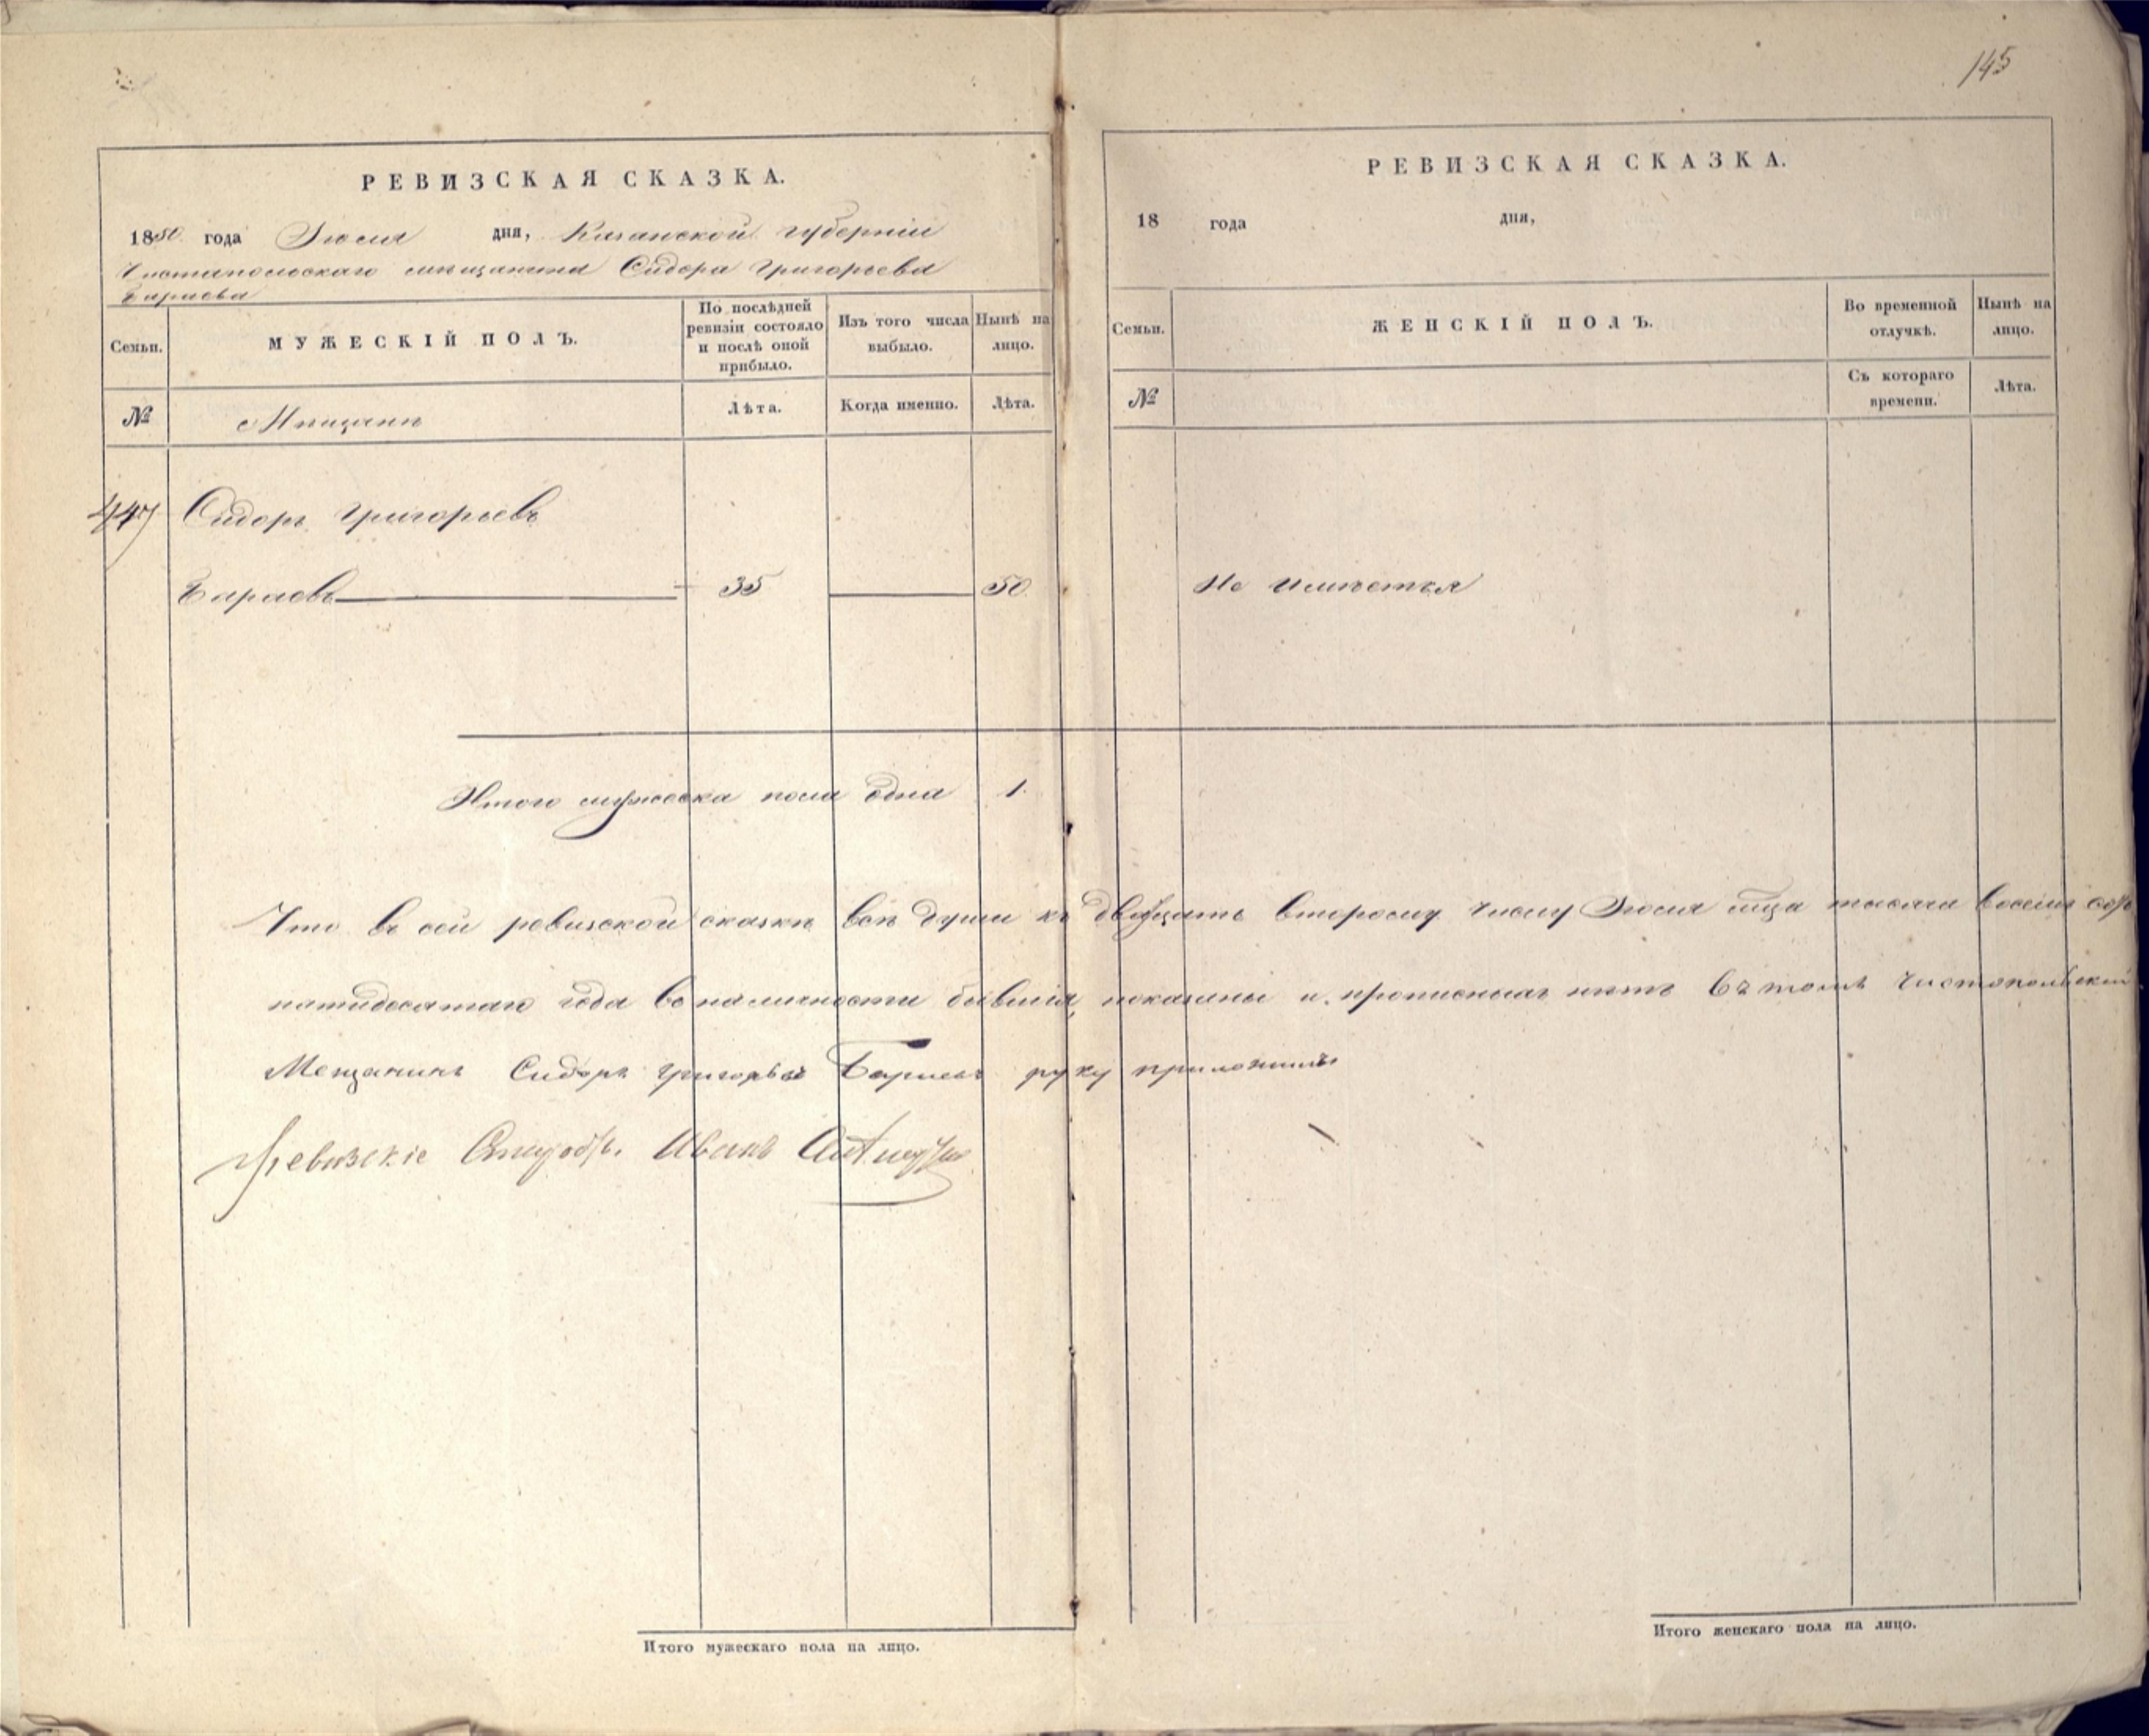 145
РЕВИЗСКАЯ СКАЗКА.
1850 года Июля дня, Казанской губерніи
Чистапольскаго мещанина Сидора Григорьева
Бараева
Семьи.
МУЖЕСКІЙ ПОЛЪ.
По послѣдней ревизіи состояло и послѣ оной прибыло.
Изъ того числа выбыло.
Нынѣ на лицо.
№
Мещане
Лѣта.
Когда именно.
Лѣта.
447 Сидоръ Григорьевъ
Бараевъ 35 50
Итого мужеска пола одна 1.
РЕВИЗСКАЯ СКАЗКА.
18 года дня,
Семьи.
ЖЕНСКІЙ ПОЛЪ.
Во временной отлучкѣ.
Нынѣ на лицо.
№
Съ котораго времени.
Лѣта.
Не имѣется
Что в сей ревизской сказке все души къ двадцать второму числу Июля тысяча восемь сотъ
пятидесятаго года во наличности бывшія, показаны и прописныхъ нетъ въ томъ чистопольский
Мещанинъ Сидоръ григорьевъ Бараевъ руку приложилъ
Иванъ
Итого мужескаго пола на лицо.
Итого женскаго пола на лицо.